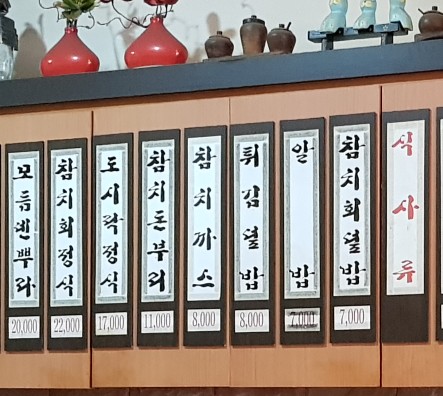 모듬덴뿌라
20,000
참치회정식
22,000
도시락정식
17,000
참치돈부리
11,000
참치까스
8,000
튀김덮밥
8,000
알밥
7,000
참치회덮밥
7,000
식사류